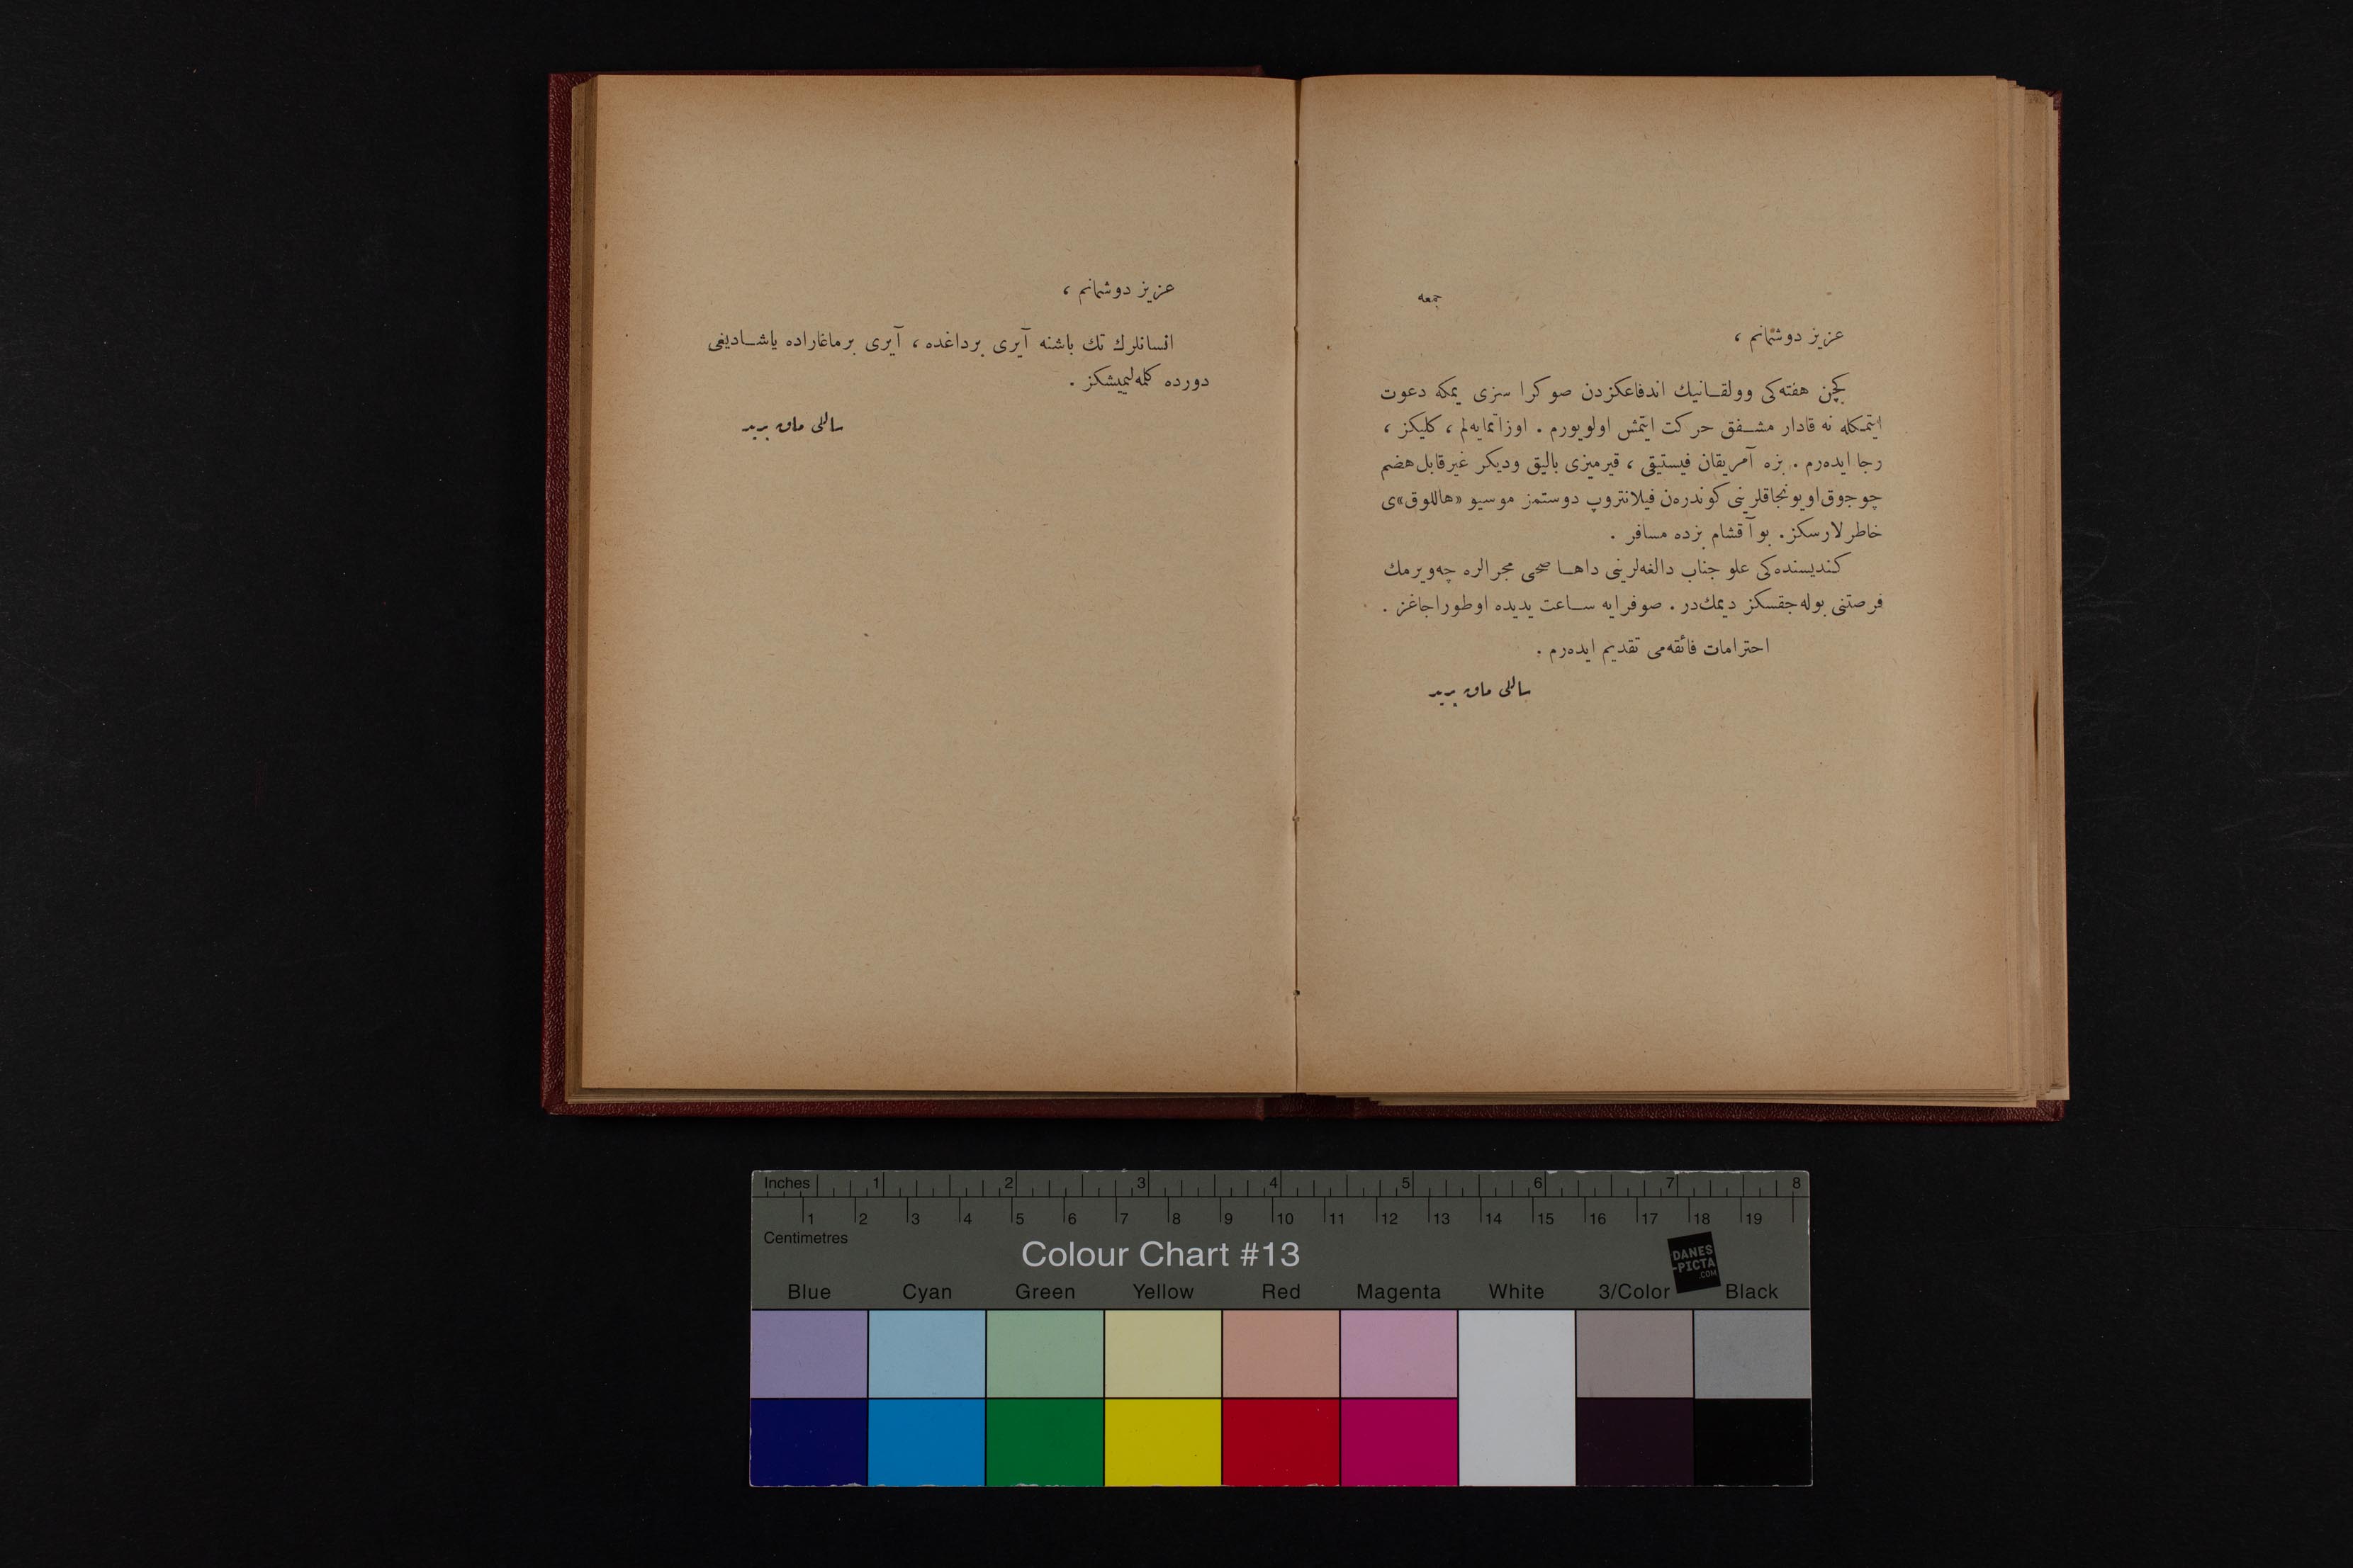 جمعه
عزیز دوشمانم ،
کچن هفته‌کی وولقـانیك اندفاعکزدن صوکرا سزی یمکه دعوت
ایتمکله نه قادار مشـفق حرکت ایتمش اولویورم . اوزاتمایه‌لم ، کلیکز ،
رجا ایده‌رم . بزه آمریقان فیستیقی ، قیرمیزی بالیق ودیکر غیرقابل هضم
چوجوق اویونجاقلرینی کوندره‌ن فیلانتروپ دوستمز موسیو «هاللوق»ی
خاطرلارسکز. بو آقشام بزده مسافر .
کندیسنده‌کی علو جناب دالغه‌لرینی داهـا صحی مجرالره چه‌ویرمك
فرصتنی بوله‌جقسکز دیمك‌در . صوفرایه سـاعت یدیده اوطوراجاغز .
احترامات فائقه‌می تقدیم ایده‌رم .
ساللی ماق برید
عزیز دوشمانم ،
انسانلرك تك باشنه آیری برداغده ، آیری برماغاراده یاشـادیغی
دورده کلمه‌لییمیشکز .
ساللی ماق برید
Inches 1 2 3 4 5 6 7 8
1 2 3 4 5 6 7 8 9 10 11 12 13 14 15 16 17 18 19
Centimetres
Colour Chart #13
DANES
-PICTA
.COM
Blue Cyan Green Yellow Red Magenta White 3/Color Black